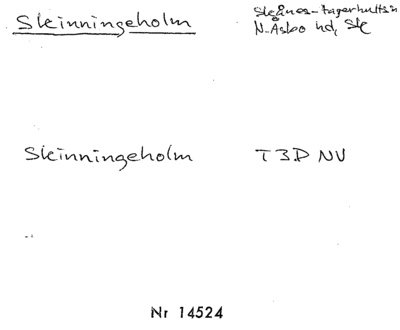 Skinningeholm
Skånes-Fagerhults
N. Åsbo hd, Sk
Skinningeholm T3D NV
Nr 14524